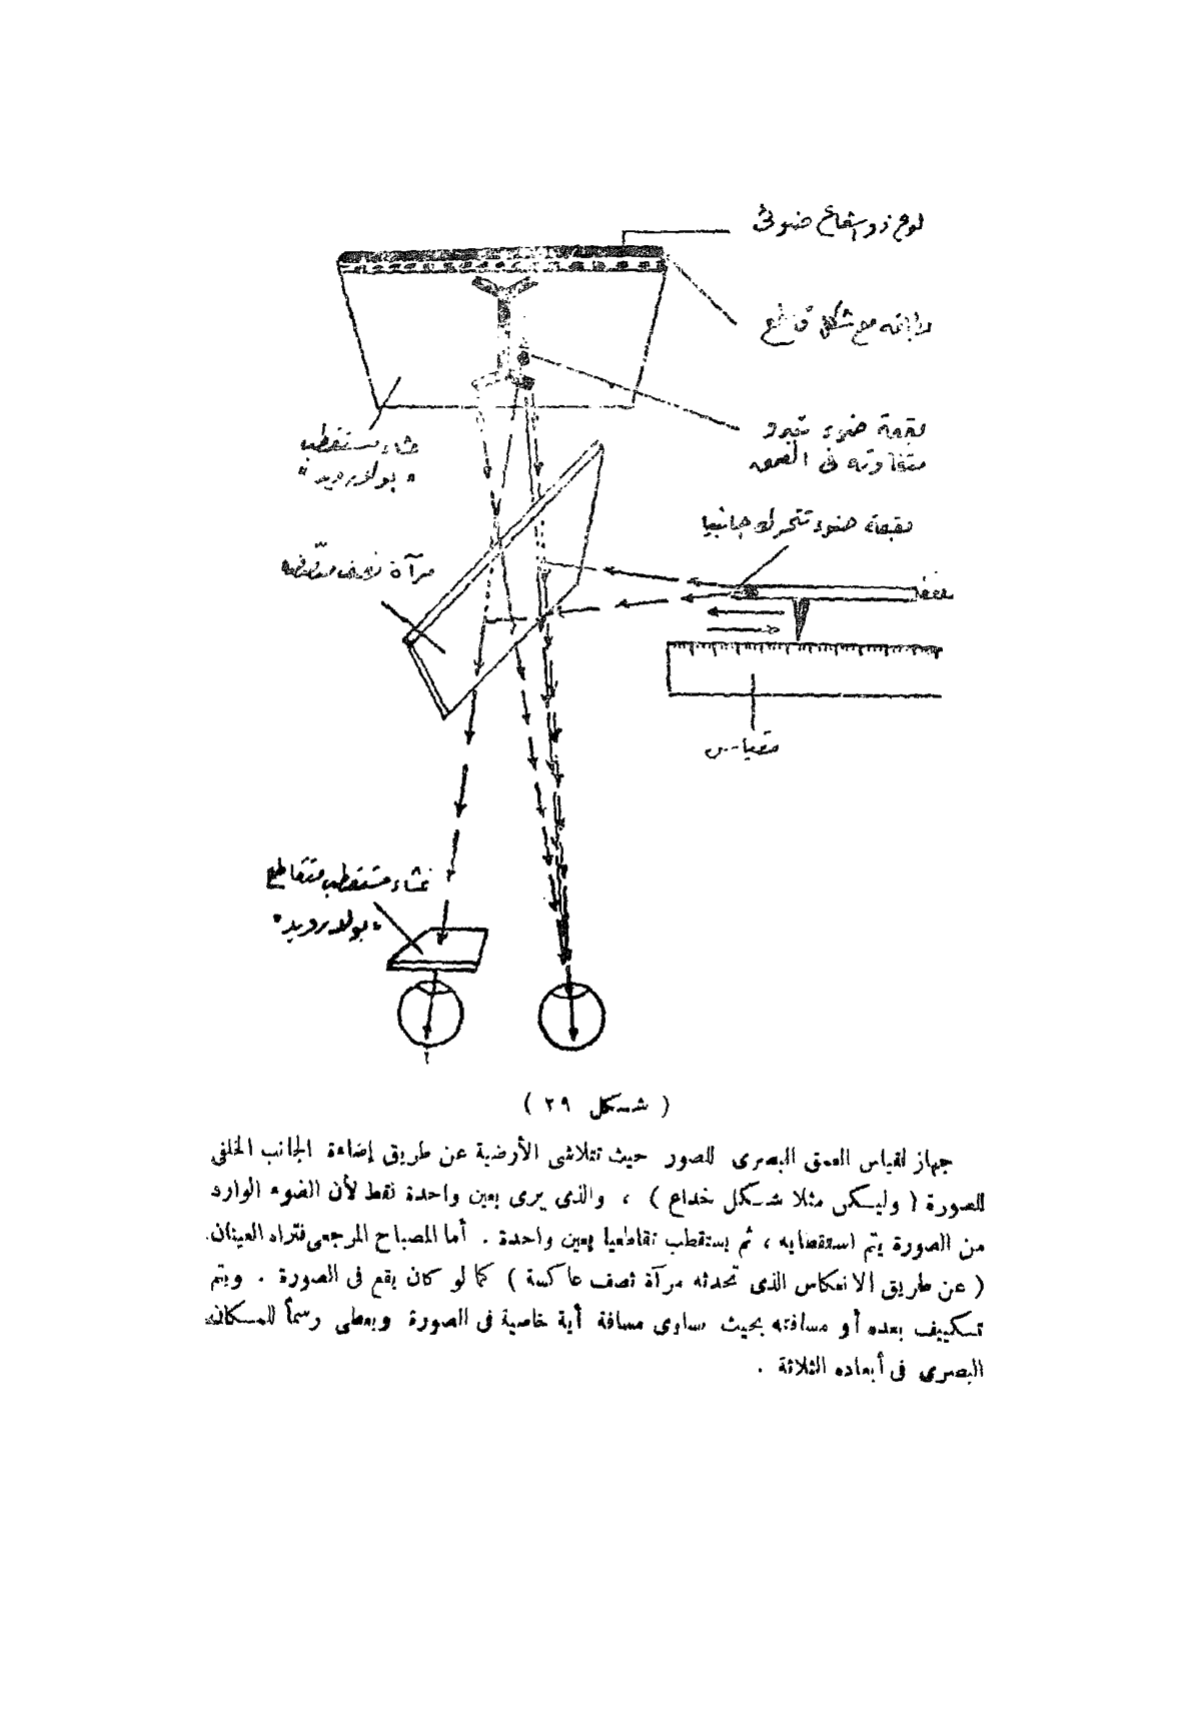 لوح ذو إشعاع ضوئى
مع شكل قاطع
بقعة ضوء تبدو
متفاوتة فى العمق
غشاء مستقطب
« بولارويد »
بقعة ضوء تتحرك جانبيا
مرآة نصف
مقياس
غشاء مستقطب متقاطع
« بولارويد »
( شكل ٢٩ )
جهاز لقياس العمق البصرى للصور حيث تتلاشى الأرضية عن طريق إضاءة الجانب الخلفى
للصورة ( وليكن مثلا شكل خداع ) ، والذى يرى بعين واحدة فقط لأن الضوء الوارد
من الصورة يتم استقطابه ، ثم يستقطب تقاطعيا بعين واحدة . أما المصباح المرجعى فتراه العينان
( عن طريق الانعكاس الذى تحدثه مرآة نصف عاكسة ) كما لو كان يقع فى الصورة . ويتم
تكييف بعده أو مسافته بحيث ساوى مسافة أية خاصية فى الصورة ويعطى رسماً للمكان
البصرى فى أبعاده الثلاثة .